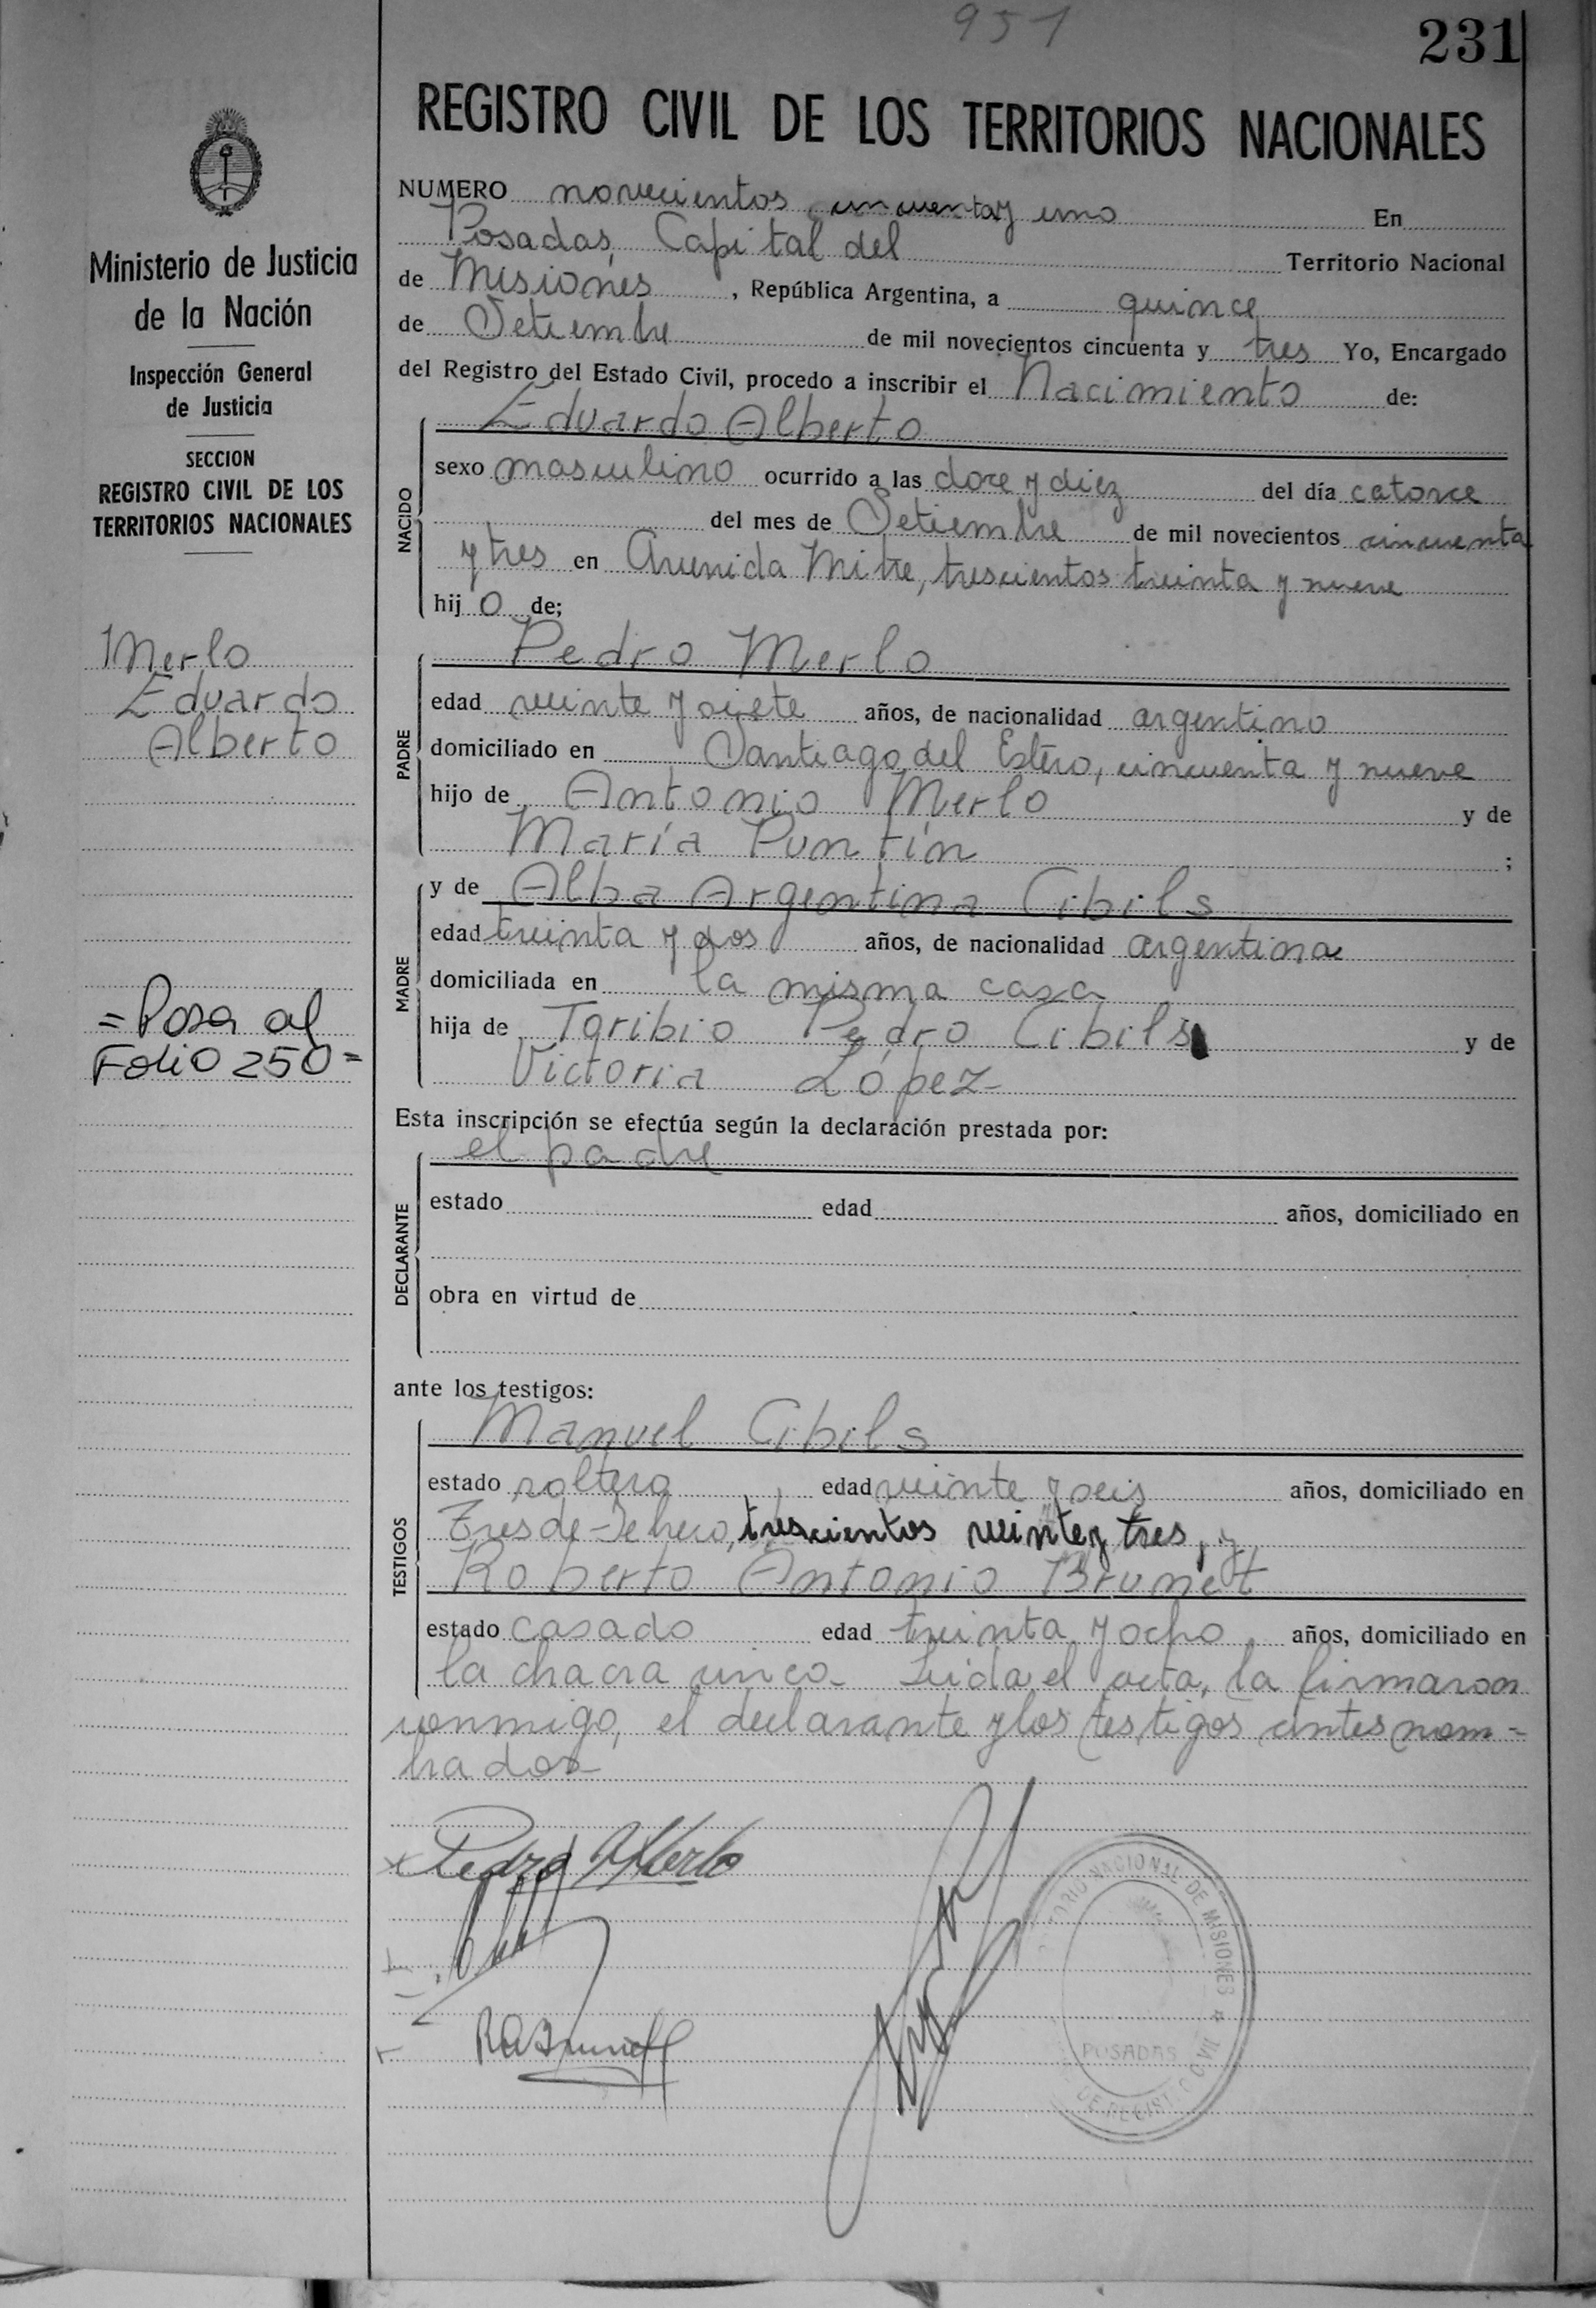 951
231
REGISTRO CIVIL DE LOS TERRITORIOS NACIONALES
Ministerio de Justicia
de la Nación
Inspección General
de Justicia
SECCION
REGISTRO CIVIL DE LOS
TERRITORIOS NACIONALES
Merlo
Eduardo
Alberto
= Pasa al
Folio 250=
NUMERO novecientos cincuenta y uno En
Posadas, Capital del Territorio Nacional
de Misiones, República Argentina, a quince
de Setiembre de mil novecientos cincuenta y tres Yo, Encargado
del Registro del Estado Civil, procedo a inscribir el Nacimiento de:
NACIDO
Eduardo Alberto
sexo masculino ocurrido a las doce y diez del día catorce
del mes de Setiembre de mil novecientos cincuenta
y tres en Avenida Mitre, trescientos treinta y nueve
hijo de;
PADRE
Pedro Merlo
edad veinte y siete años, de nacionalidad argentino
domiciliado en Santiago del Estero, cincuenta y nueve
hijo de Antonio Merlo y de
María Puntín ;
MADRE
y de Alba Argentina Cibils
edad treinta y dos años, de nacionalidad argentina
domiciliada en la misma casa
hija de Toribio Pedro Cibils y de
Victoria López
Esta inscripción se efectúa según la declaración prestada por:
DECLARANTE
el padre
estado edad años, domiciliado en
obra en virtud de
ante los testigos:
TESTIGOS
Manuel Cibils
estado soltero edad veinte y seis años, domiciliado en
Tres de Febrero, trescientos veinte y tres, y
Roberto Antonio Brunet
estado casado edad treinta y ocho años, domiciliado en
la chacra única Leida el acta, la firmaron
conmigo, el declarante y los testigos antes nom-
brados
Pedro Merlo
RABrunet
TERRITORIO NACIONAL DE MISIONES
POSADAS